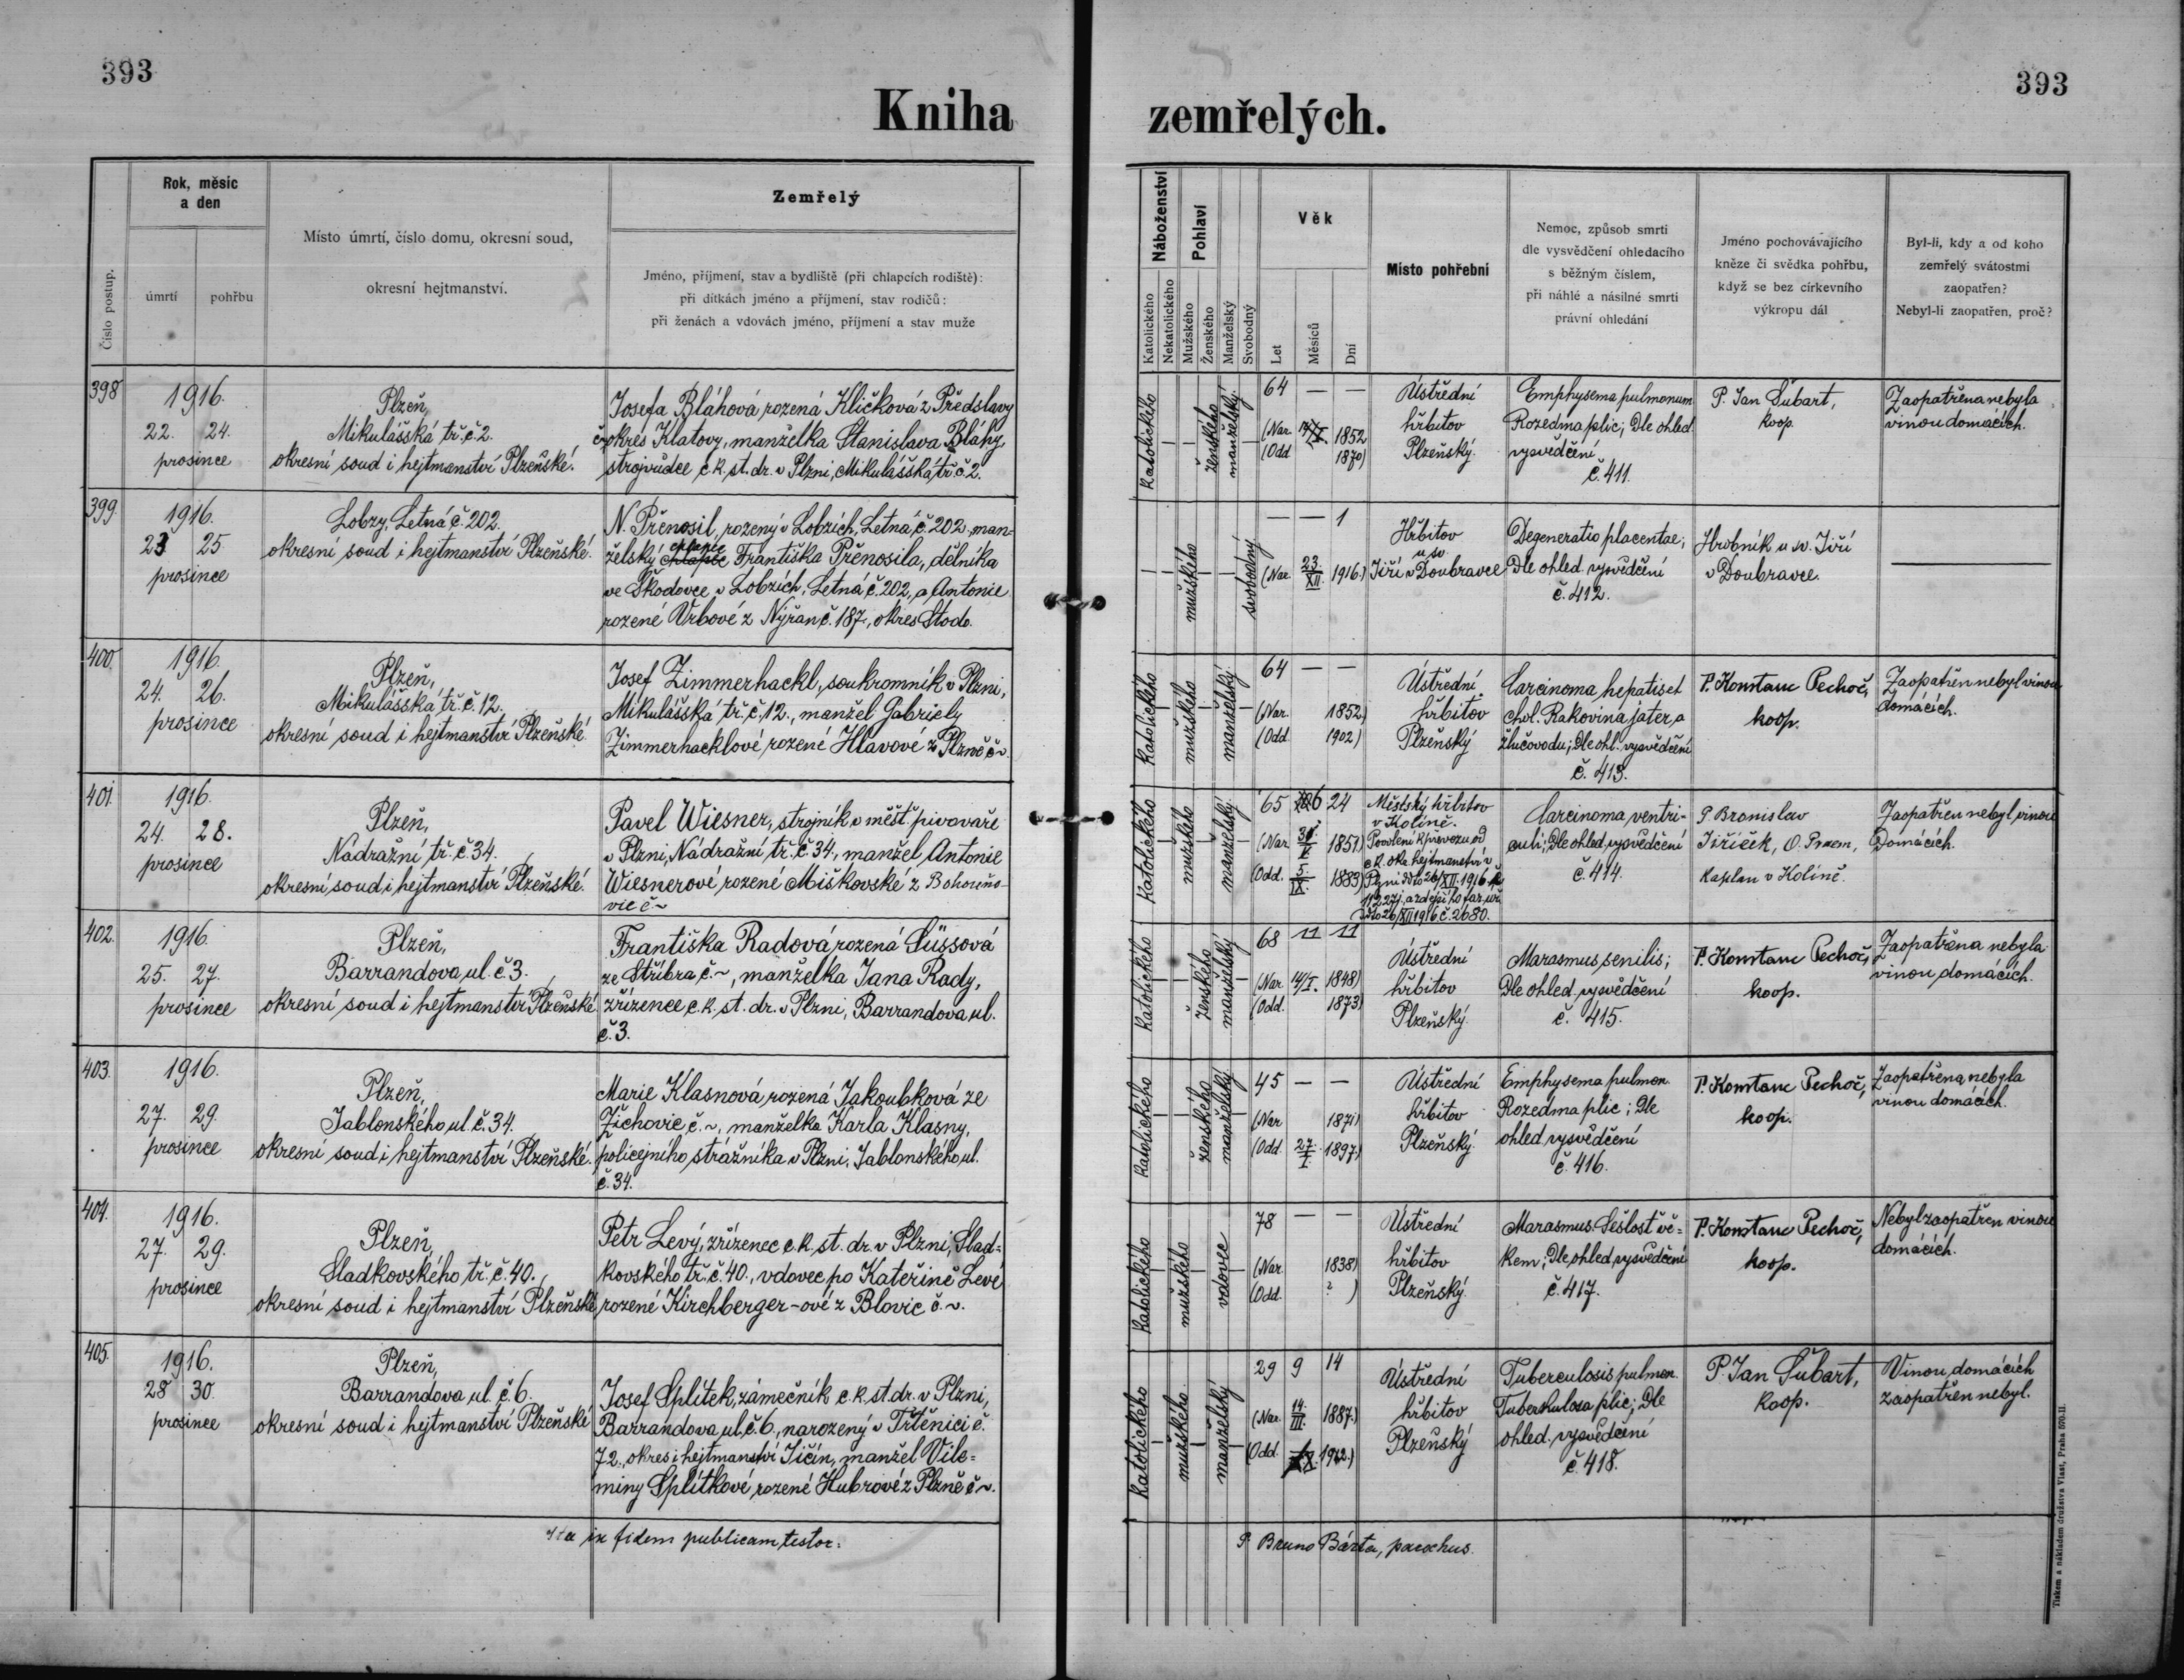 393
393
Kniha zemřelých.
Číslo postup.
Rok, měsíc
a den
úmrtí
pohřbu
Místo úmrtí, číslo domu, okresní soud,
okresní hejtmanství.
Zemřelý
Jméno, příjmení, stav a bydliště (při chlapcích rodiště):
při dítkách jméno a příjmení, stav rodičů:
při ženách a vdovách jméno, příjmení a stav muže
Náboženství
Katolického
Nekatolického
Pohlaví
Mužského
Ženského
Manželský
Svobodný
Věk
Let
Měsíců
Dní
Místo pohřební
Nemoc, způsob smrti
dle vysvědčení ohledacího
s běžným číslem,
při náhlé a násilné smrti
právní ohledání
Jméno pochovávajícího
kněze či svědka pohřbu,
když se bez církevního
výkropu dál
Byl-li, kdy a od koho
zemřelý svátostmi
zaopatřen?
Nebyl-li zaopatřen, proč?
398
1916.
22. 24.
prosince
Plzeň,
Mikulášská tř. č. 2.
okresní soud i hejtmanství Plzeňské.
Josefa Bláhová rozená Kličková z Předslavy
č~ okres Klatovy, manželka Stanislava Bláhy
strojvůdce c. k. st. dr. v Plzni, Mikulášská tř. č. 2.
katolického
ženského
manželský
64 — —
(Nar. 1852
(Odd 1870)
Ústřední
hřbitov
Plzeňský.
Emphysema pulmonum
Rozedma plic; Dle ohled.
vysvědčení
č. 411.
P. Jan Šubart,
koop.
Zaopatřena nebyla
vinou domácích.
399.
1916.
23 25
prosince
Lobzy, Letná č. 202.
okresní soud i hejtmanství Plzeňské.
N. Přenosil, rozený v Lobzích, Letná č. 202. man-
želský chlapec Františka Přenosila, dělníka
ve Škodovce v Lobzích, Letná č. 202., a Antonie
rozené Vrbové z Nýřan č. 187., okres Stodo.
mužského
svobodný
— — 1
(Nar. 23./XII. 1916.)
Hřbitov
u sv.
Jiří v Doubravce
Degeneratio placentae;
Dle ohled. vysvědčení
č. 412.
Hrobník u sv. Jiří
v Doubravce.
400.
1916.
24. 26.
prosince
Plzeň,
Mikulášská tř. č. 12.
okresní soud i hejtmanství Plzeňské.
Josef Zimmerhackl, soukromník v Plzni,
Mikulášská tř. č. 12., manžel Gabriely
Zimmerhacklové rozené Hlavové z Plzně č ~.
katolického
mužského
manželský
64 — —
(Nar. 1852.)
(Odd 1902)
Ústřední
hřbitov
Plzeňský
Carcinoma hepatis et
chol. Rakovina jater, a
žlučovodu; Dle ohl. vysvědčení
č. 413.
P. Konstanc Pechoč,
koop.
Zaopatřen nebyl vinou
domácích.
401.
1916.
24. 28.
prosince
Plzeň,
Nádražní tř. č. 34.
okresní soud i hejtmanství Plzeňské.
Pavel Wiesner, strojník v měšť. pivovaře
v Plzni, Nádražní tř. č. 34., manžel Antonie
Wiesnerové rozené Miškovské z Bohouňo-
vic č ~
katolického
mužského
manželský
65 6 24
(Nar. 1851)
(Odd. 5./IX. 1883)
Městský hřbitov
v Kolíně.
Povolení k převozu od
c. k. okr. hejtmanství v
Plzni ddto 26/XII. 1916.
ddto 26/XII 1916 č. 2680.
Carcinoma ventri-
culi; Dle ohled. vysvědčení
č. 414.
P. Bronislav
Jiříček, O. Praem,
kaplan v Kolíně.
Zaopatřen nebyl vinou
Domácích.
402.
1916.
25. 27.
prosince
Plzeň,
Barrandova ul. č 3.
okresní soud i hejtmanství Plzeňské
Františka Radová rozená Süssová
ze Stříbra č. ~, manželka Jana Rady,
zřízence c. k. st. dr. v Plzni, Barrandova ul.
č. 3.
katolického
ženského
manželský
68 11 11
(Nar. 14/I. 1848)
(Odd. 1873)
Ústřední
hřbitov
Plzeňský.
Marasmus senilis;
Dle ohled. vysvědčení
č. 415.
P. Konstanc Pechoč,
koop.
Zaopatřena nebyla
vinou domácích.
403.
1916.
27. 29.
prosince
Plzeň,
Jablonského ul. č. 34.
okresní soud i hejtmanství Plzeňské.
Marie Klasnová rozená Jakoubková ze
Žichovic č. ~, manželka Karla Klasny,
policejního strážníka v Plzni, Jablonského ul.
č. 34.
katolického
ženského
manželský
45 — —
(Nar 1871)
(Odd. 27./I. 1897.)
Ústřední
hřbitov
Plzeňský.
Emphysema pulmon.
Rozedma plic; Dle
ohled. vysvědčení
č. 416.
P. Konstanc Pechoč,
koop.
Zaopatřena nebyla
vinou domácích.
404.
1916.
27. 29.
prosince
Plzeň,
Sladkovského tř. č. 40.
okresní soud i hejtmanství Plzeňské,
Petr Levý, zřízenec c. k. st. dr. v Plzni, Slad-
kovského tř. č. 40., vdovec po Kateřině Levé
rozené Kirchberger-ové z Blovic č. ~.
katolického
mužského
vdovec
78 — —
(Nar. 1838)
(Odd. ? )
Ústřední
hřbitov
Plzeňský.
Marasmus. Sešlost vě-
kem; Dle ohled. vysvědčení
č. 417.
P. Konstanc Pechoč,
koop.
Nebyl zaopatřen vinou
domácích.
405.
1916.
28 30.
prosince
Plzeň,
Barrandova ul. č. 6.
okresní soud i hejtmanství Plzeňské
Josef Splítek, zámečník c. k. st. dr. v Plzni,
Barrandova ul. č. 6., narozený v Třtěnici č.
72., okres i hejtmanství Jičín, manžel Vile-
miny Splítkové rozené Hubrové z Plzně č ~.
katolického
mužského
manželský
29 9 14
(Nar. 14./III. 1887.)
(Odd. 1912.)
Ústřední
hřbitov
Plzeňský
Tuberculosis pulmon.
Tuberkulosa plic; Dle
ohled. vysvědčení
č. 418.
P. Jan Šubart,
koop.
Vinou domácích
zaopatřen nebyl.
Ita in fidem publicam testor:
P. Bruno Bárta, parochus.
Tiskem a nákladem družstva Vlast, Praha 570-II.